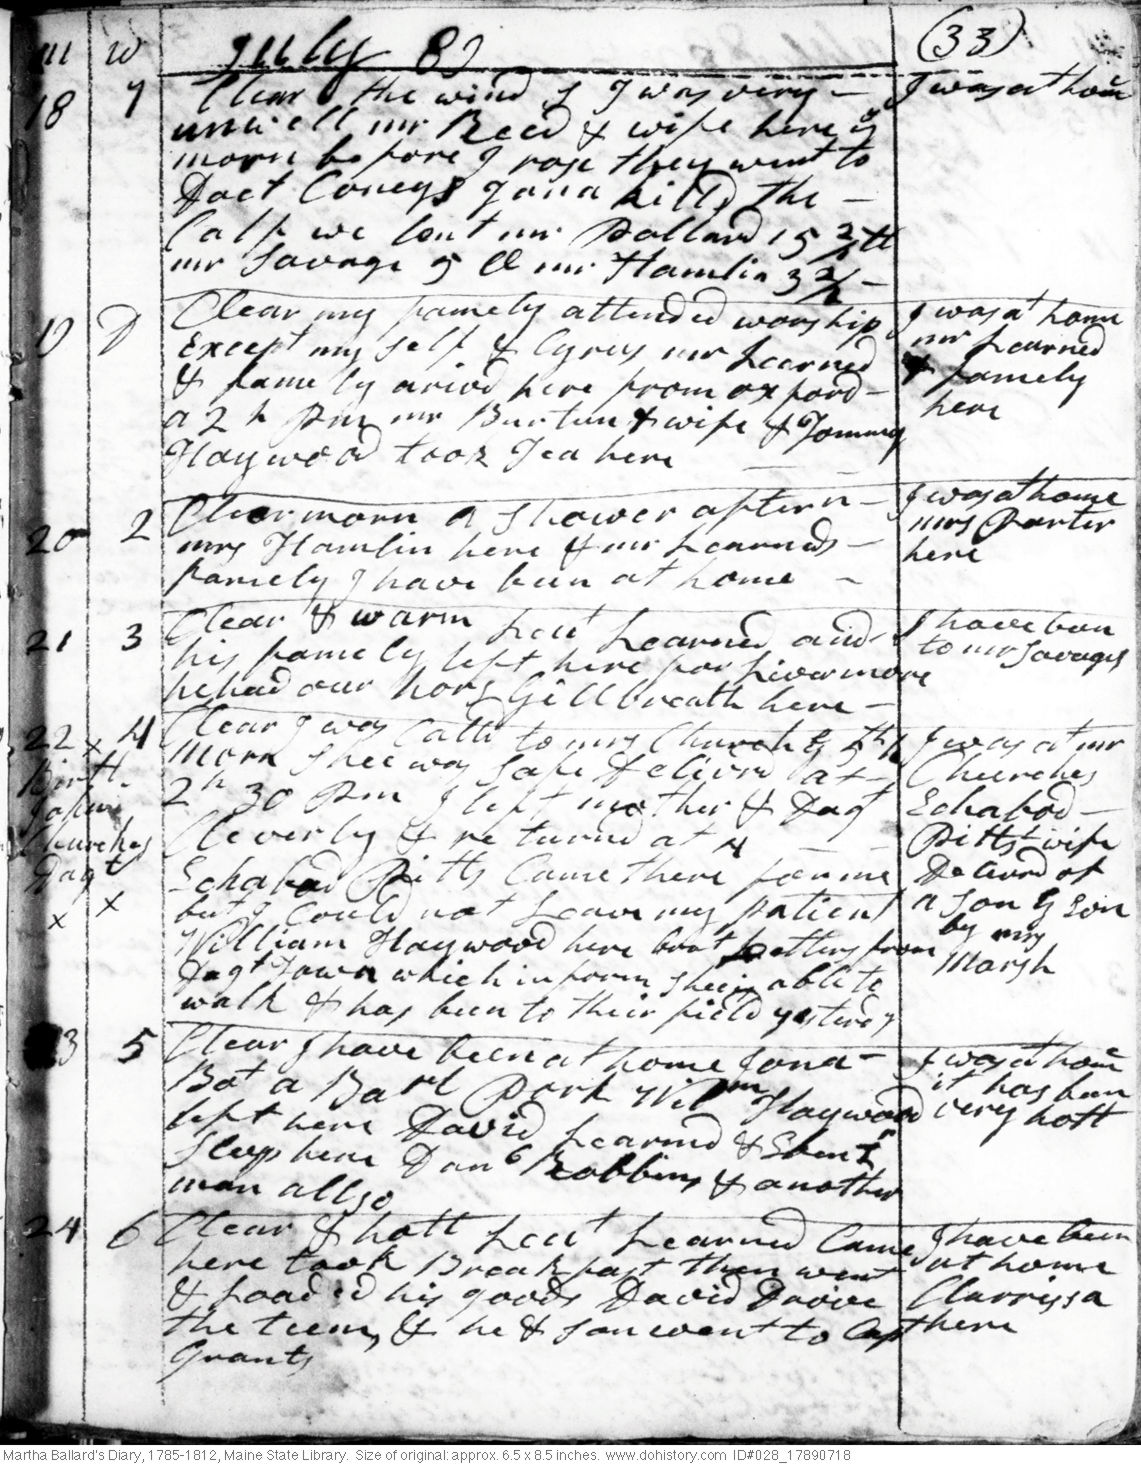 m w July 89 (33)
18 7 Clear the wind S I was very –
unwell mr Reed & wife here ys
morn before I rose they went to
Doct Coneys Jona killd the –
Calf we lent mr Pollard 15 2/4 lb
mr Savage 9 lb mr Hamlin 3 2/4 –
I was at home
19 D Clear my famely attended worship
Except my self & Cyrus mr Learned
& famely arivd here from oxford –
a 2 h Pm mr Burtun & wife & Tommy
Haywood took Tea here
I was at home
mr Learned
& famely
here
20 2 Cleer morn a shower aftern –
mrs Hamlin here & mr Learneds –
famely I have been at home –
I was at home
mrs Porter
here
21 3 Clear & warm Leut Learned and
his famely left here for Livermore
he had our hors Gillbreath here –
I have been
to mr Savages
22 x 4 Clear I was Calld to mrs Church at 5th h
morn Shee was Safe Deliverd at –
2 h 30 Pm I left mother & Dagt
Cleverly & returnd at 4
Ichabod Pitts Came there for me
but I Could not Leave my patient
William Haywood here brot Letters from
Dagt Town which inform shee is able to
walk & has been to their field yesterdy
Birth
Churches
Dagt
x x
I was at mr
Churches
Ichabod –
Pitts wife
Delivrd of
a Son & Son
by mrs
Marsh
23 5 Clear I have been at home Jona –
Bot a Barl Pork Wilm Haywood
left here David Learned & Ebenr
Sleep here Danl Robbins & another
man allso
I was at home
it has been
very hott
24 6 Clear & hott Leut Learned Came
here took Breakfast then went
& Loaded his goods David Drove
the teem, & he & son went to Capt
Grants
I have been
at home
Clarrissa
here
Martha Ballard's Diary, 1785-1812, Maine State Library. Size of original: approx. 6.5 x 8.5 inches. www.dohistory.com ID#028_17890718